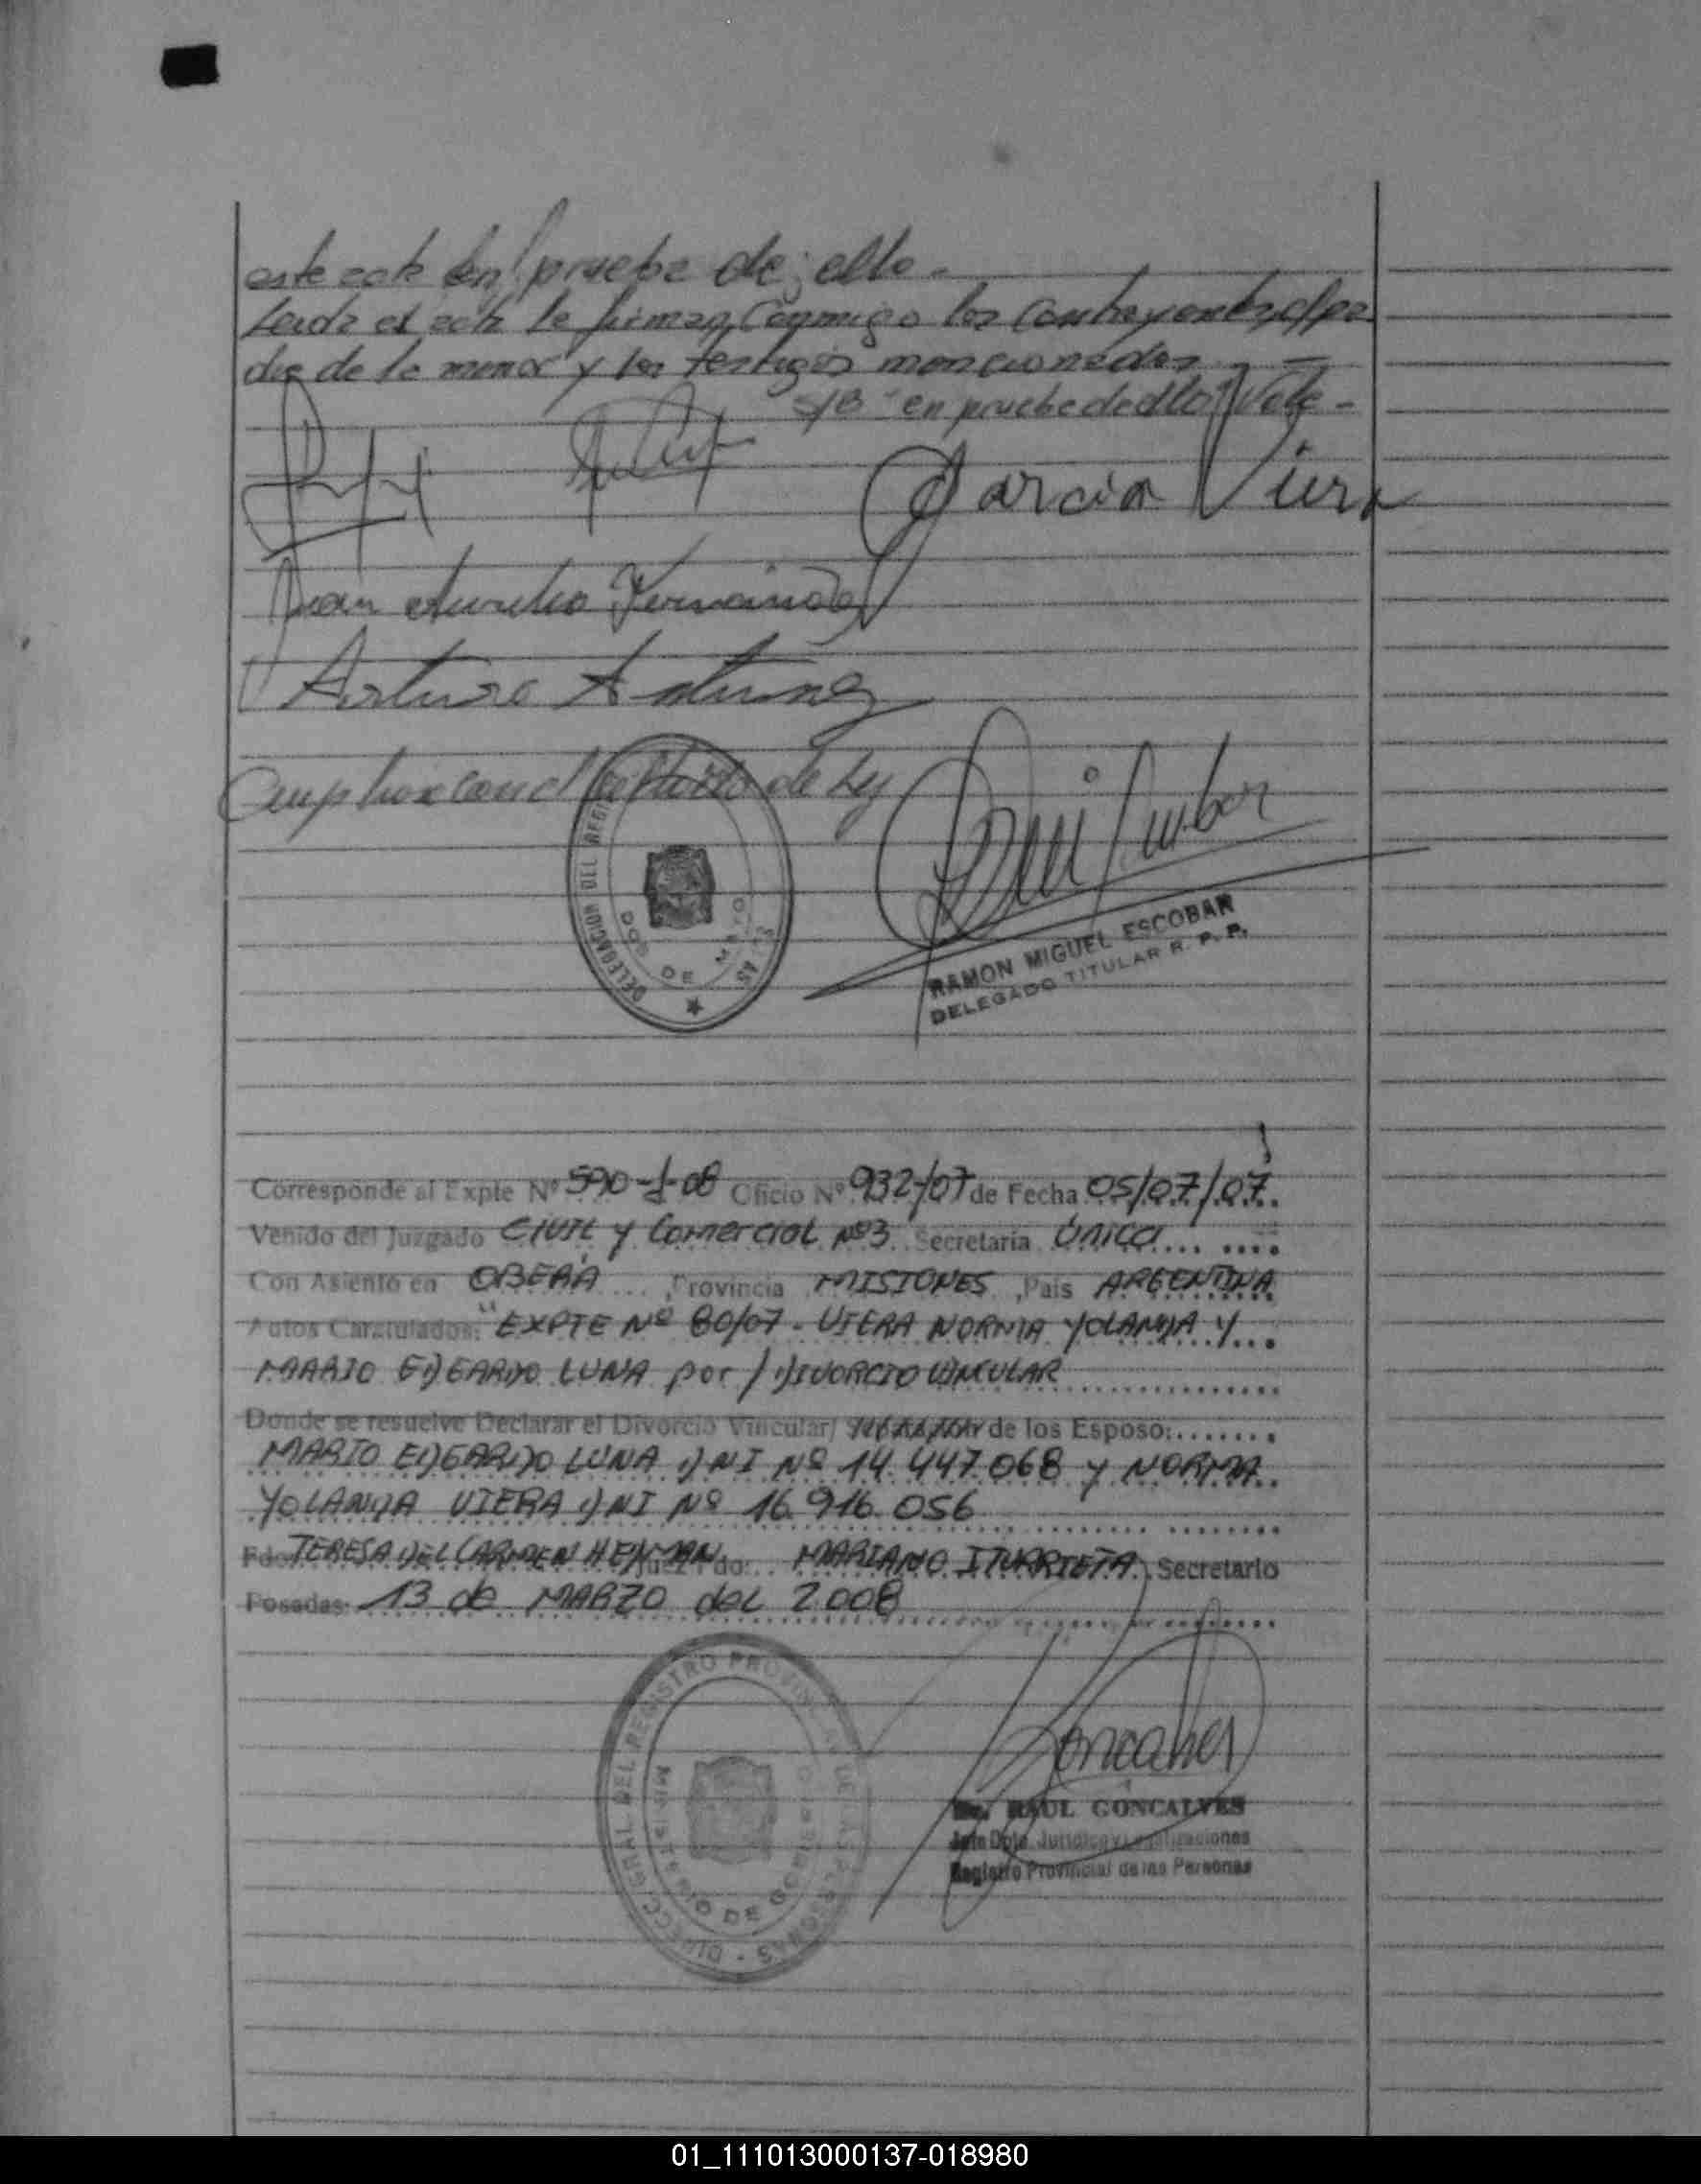 este acta en prueba de ello.-
Leida el acta la firman conmigo los contrayentes, el pa
dre de la menor y los testigos mencionados
S/B "en prueba de ello" Vale-
Garcia Viera
Juan Aurelio Fernández
Arturo Antunez
de Ley
DELEGACION DEL REGI AS
DOS DE MAYO
RAMON MIGUEL ESCOBAR
DELEGADO TITULAR R. P. P.
Corresponde al Expte Nº 590-J-08 Oficio Nº 932/07 de Fecha 05/07/07.
Venido del Juzgado CIVIL y Comercial Nº3 Secretaría Única
Con Asiento en OBERA, Provincia MISIONES, País ARGENTINA
Autos Caratulados: "EXPTE Nº 80/07 - VIERA NORMA YOLANDA Y
MARIO EDGARDO LUNA por / DIVORCIO VINCULAR
Donde se resuelve Declarar el Divorcio Vincular/ de los Esposo:
MARIO EDGARDO LUNA DNI Nº 14.447.068 y NORMA
YOLANDA VIERA DNI Nº 16.916.056
Fdo: TERESA DEL CARMEN Juez Fdo: MARIANO ITURRIETA Secretario
Posadas: 13 de MARZO del 2.008
DIRECC. GRAL. DEL REGISTRO PROVINCIAL DE LAS PERSONAS
MINISTERIO DE GOBIERNO
Goncalves
Dr. RAUL GONCALVES
Jefe Dpto. Jurídico y Legalizaciones
Registro Provincial de las Personas
01_111013000137-018980